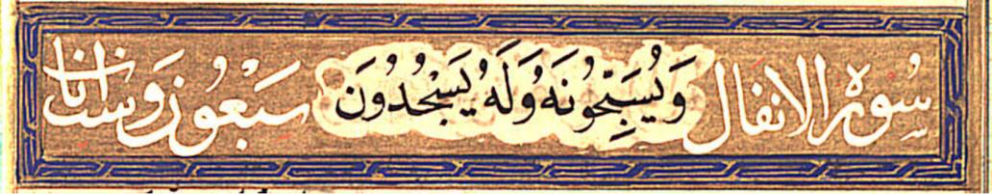 سُورَةُ الانفال وَيُسَبِّحُونَهُ وَلَهُ يَسْجُدُونَ سَبْعُون وست ايات